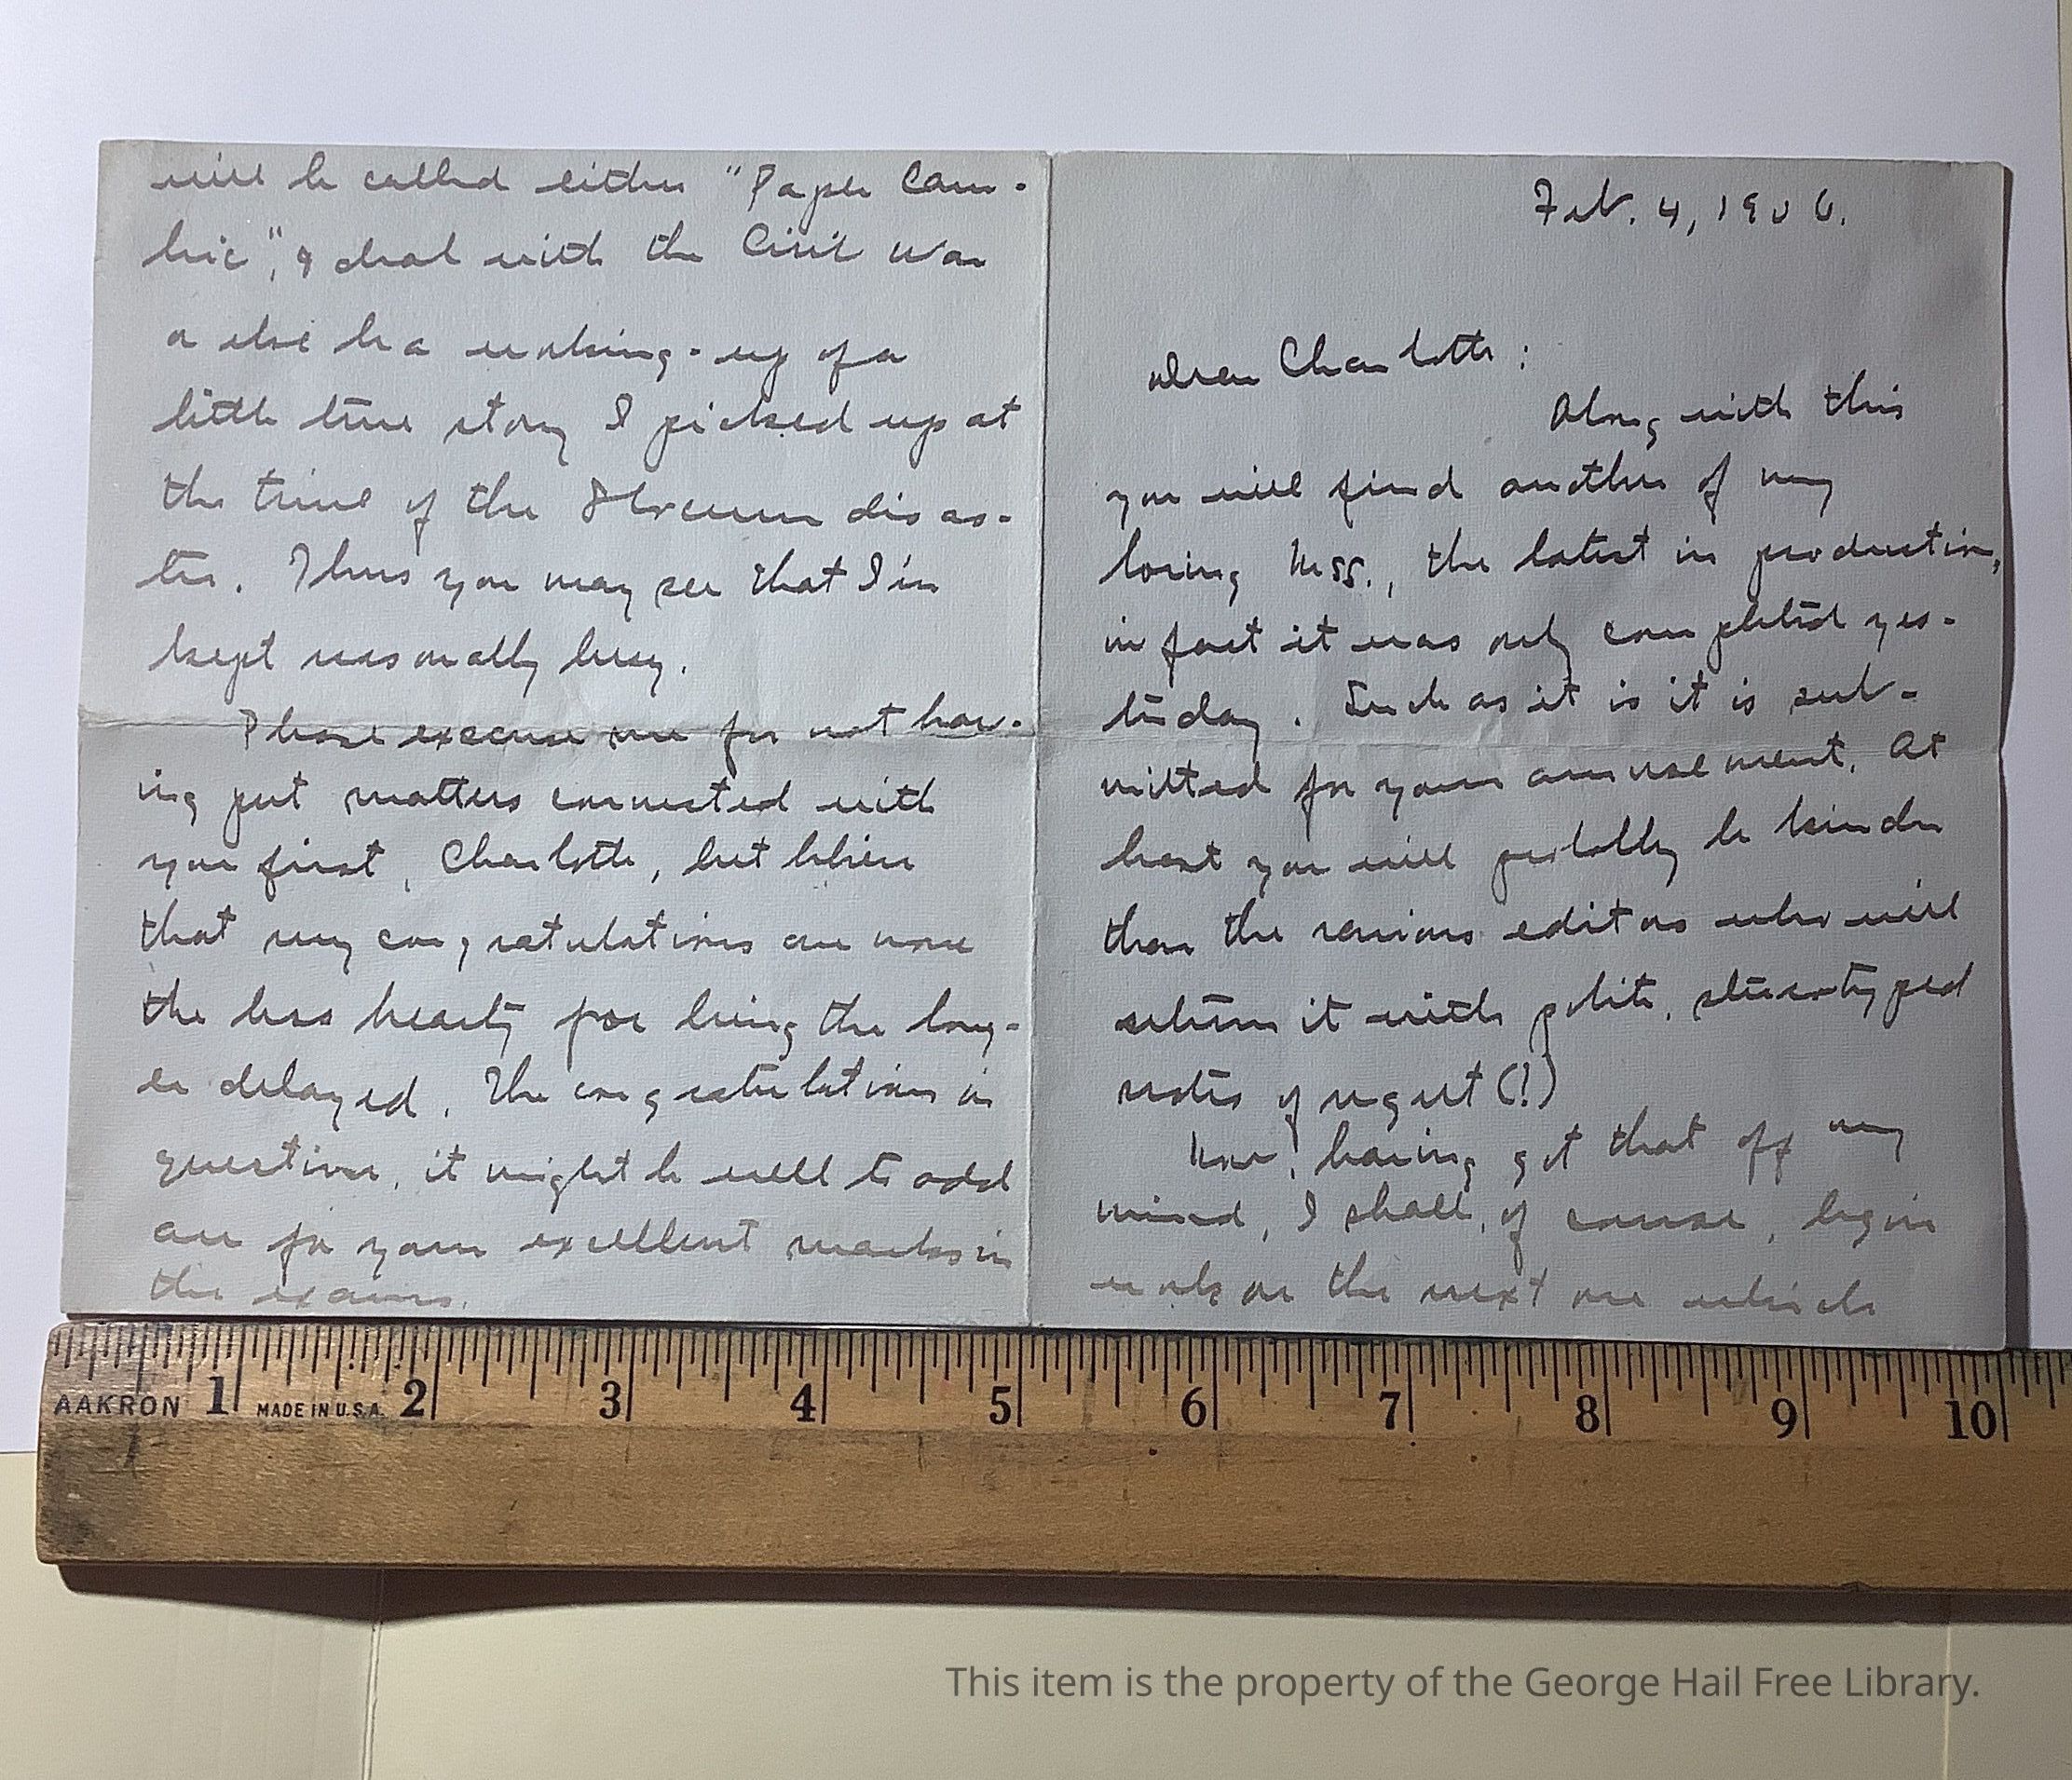 Feb. 4, 1906.
Dear Charlotte:
Along with this
you will find another of my
boring Mss., the latest in production,
in fact it was only completed yes-
terday. Such as it is it is sub-
mitted for your amusement. At
least you will probably be kinder
than the various editors who will
return it with polite, stereotyped
notes of regret (!)
Now, having got that off my
mind, I shall, of course, begin
work on the next one which
will be called either "Paper Cam-
bric", & deal with the Civil War
or else be a working-up of a
little true story I picked up at
the time of the Slocum disas-
ter. Thus you may see that I'm
kept reasonably busy.
Please excuse me for not hav-
ing put matters connected with
you first, Charlotte, but believe
that my congratulations are none
the less hearty for being the long-
er delayed. The congratulations in
question, it might be well to add
are for your excellent marks in
the exams.
AAKRON 1 MADE IN U.S.A. 2 3 4 5 6 7 8 9 10
This item is the property of the George Hail Free Library.